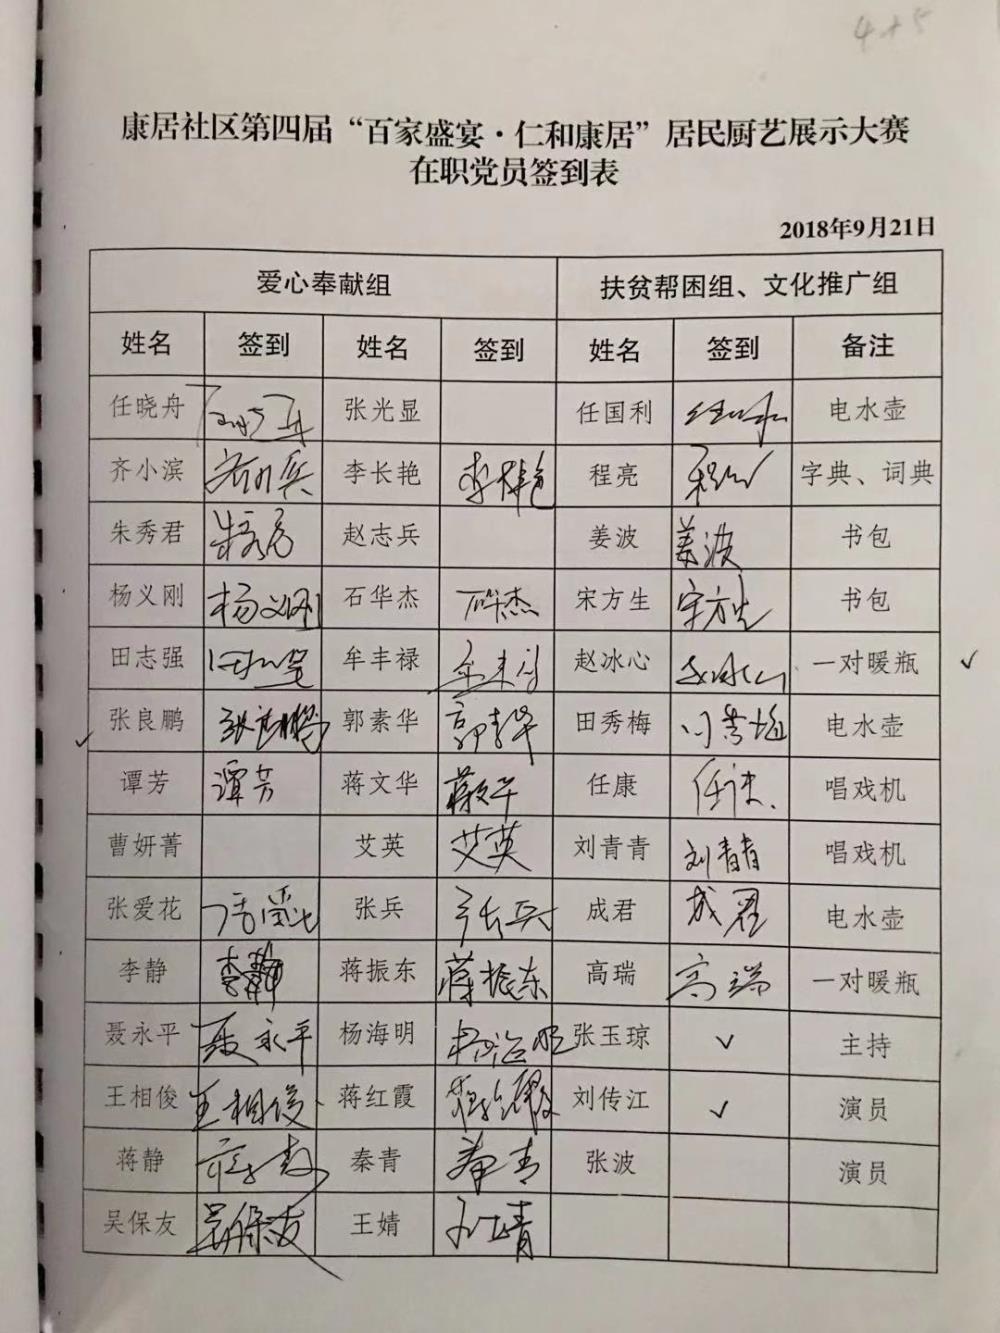 4+5
康居社区第四届“百家盛宴·仁和康居”居民厨艺展示大赛
在职党员签到表
2018年9月21日
爱心奉献组 扶贫帮困组、文化推广组
姓名 签到 姓名 签到 姓名 签到 备注
任晓舟 张光显 任国利 电水壶
齐小滨 李长艳 李长艳 程亮 字典、词典
朱秀君 赵志兵 姜波 姜波 书包
杨义刚 杨义刚 石华杰 石华杰 宋方生 宋方生 书包
田志强 牟丰禄 赵冰心 一对暖瓶 ✓
✓ 张良鹏 张良鹏 郭素华 郭素华 田秀梅 电水壶
谭芳 谭芳 蒋文华 任康 唱戏机
曹妍菁 艾英 艾英 刘青青 刘青青 唱戏机
张爱花 张兵 张兵 成君 成君 电水壶
李静 李静 蒋振东 蒋振东 高瑞 高瑞 一对暖瓶
聂永平 聂永平 杨海明 杨海明 张玉琼 ✓ 主持
王相俊 王相俊 蒋红霞 刘传江 ✓ 演员
蒋静 秦青 秦青 张波 演员
吴保友 吴保友 王婧 王婧